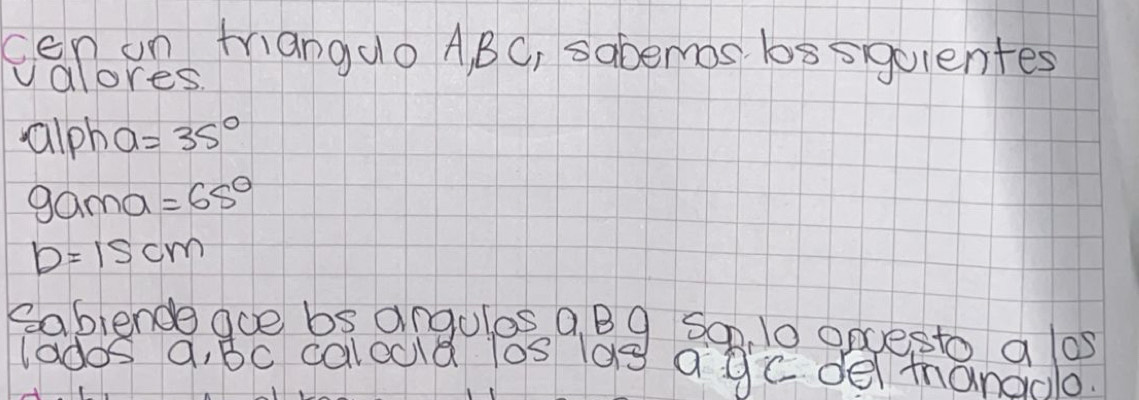 c en un triangulo A,B C, sabemos los siguientes
valores.
alpha= 35°
gama = 65°
b= 15 cm
sabiendo que los angulos a, B g son lo opuesto a los
lados a, b c calcula los las a y c del triangulo.